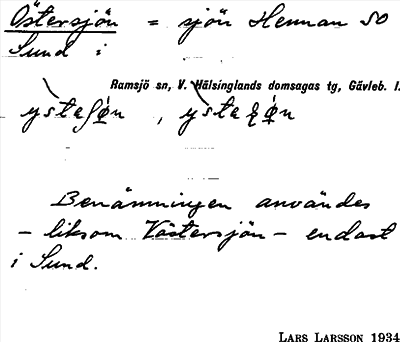 Östersjön = sjön Hennan SO
Sund i
Ramsjö sn, V. Hälsinglands domsagas tg, Gävleb. l.
Benämningen användes
– liksom Västersjön – endast
i Sund.
LARS LARSSON 1934